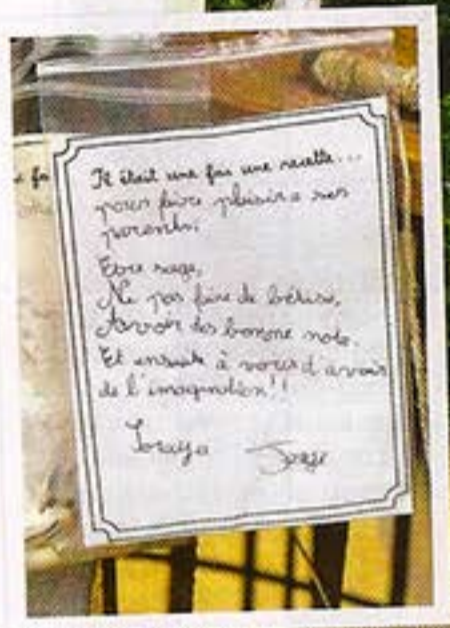 Il était une foi une recette...
pour faire plaisir a ses
parents.
Etre sage,
Ne pas faire de bétise,
Avoir des bonne note.
Et ensuite à vous d'avoir
de l'imagination!!
Soraya Jorge